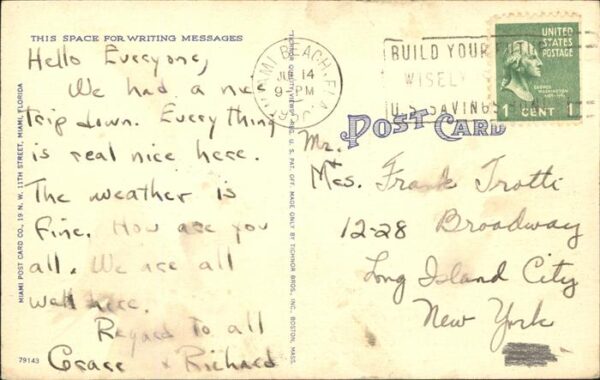 THIS SPACE FOR WRITING MESSAGES
Hello Everyone,
We had a nice
trip down. Every thing
is real nice here.
The weather is
fine. How are you
all. We are all
well here.
Regard to all
Grace & Richard
79143
MIAMI POST CARD CO., 19 N. W. 11TH STREET, MIAMI, FLORIDA
TICHNOR QUALITY VIEWS REG. U. S. PAT. OFF. MADE ONLY BY TICHNOR BROS., INC. BOSTON, MASS.
MIAMI BEACH, FLA.
14
9 PM
BUILD YOUR FUTURE
WISELY
U.S. SAVINGS BONDS
UNITED
STATES
POSTAGE
GEORGE
WASHINGTON
1 CENT 1
POST CARD
Mr.
+
Mrs. Frank Trotti
12-28 Broadway
Long Island City
New York